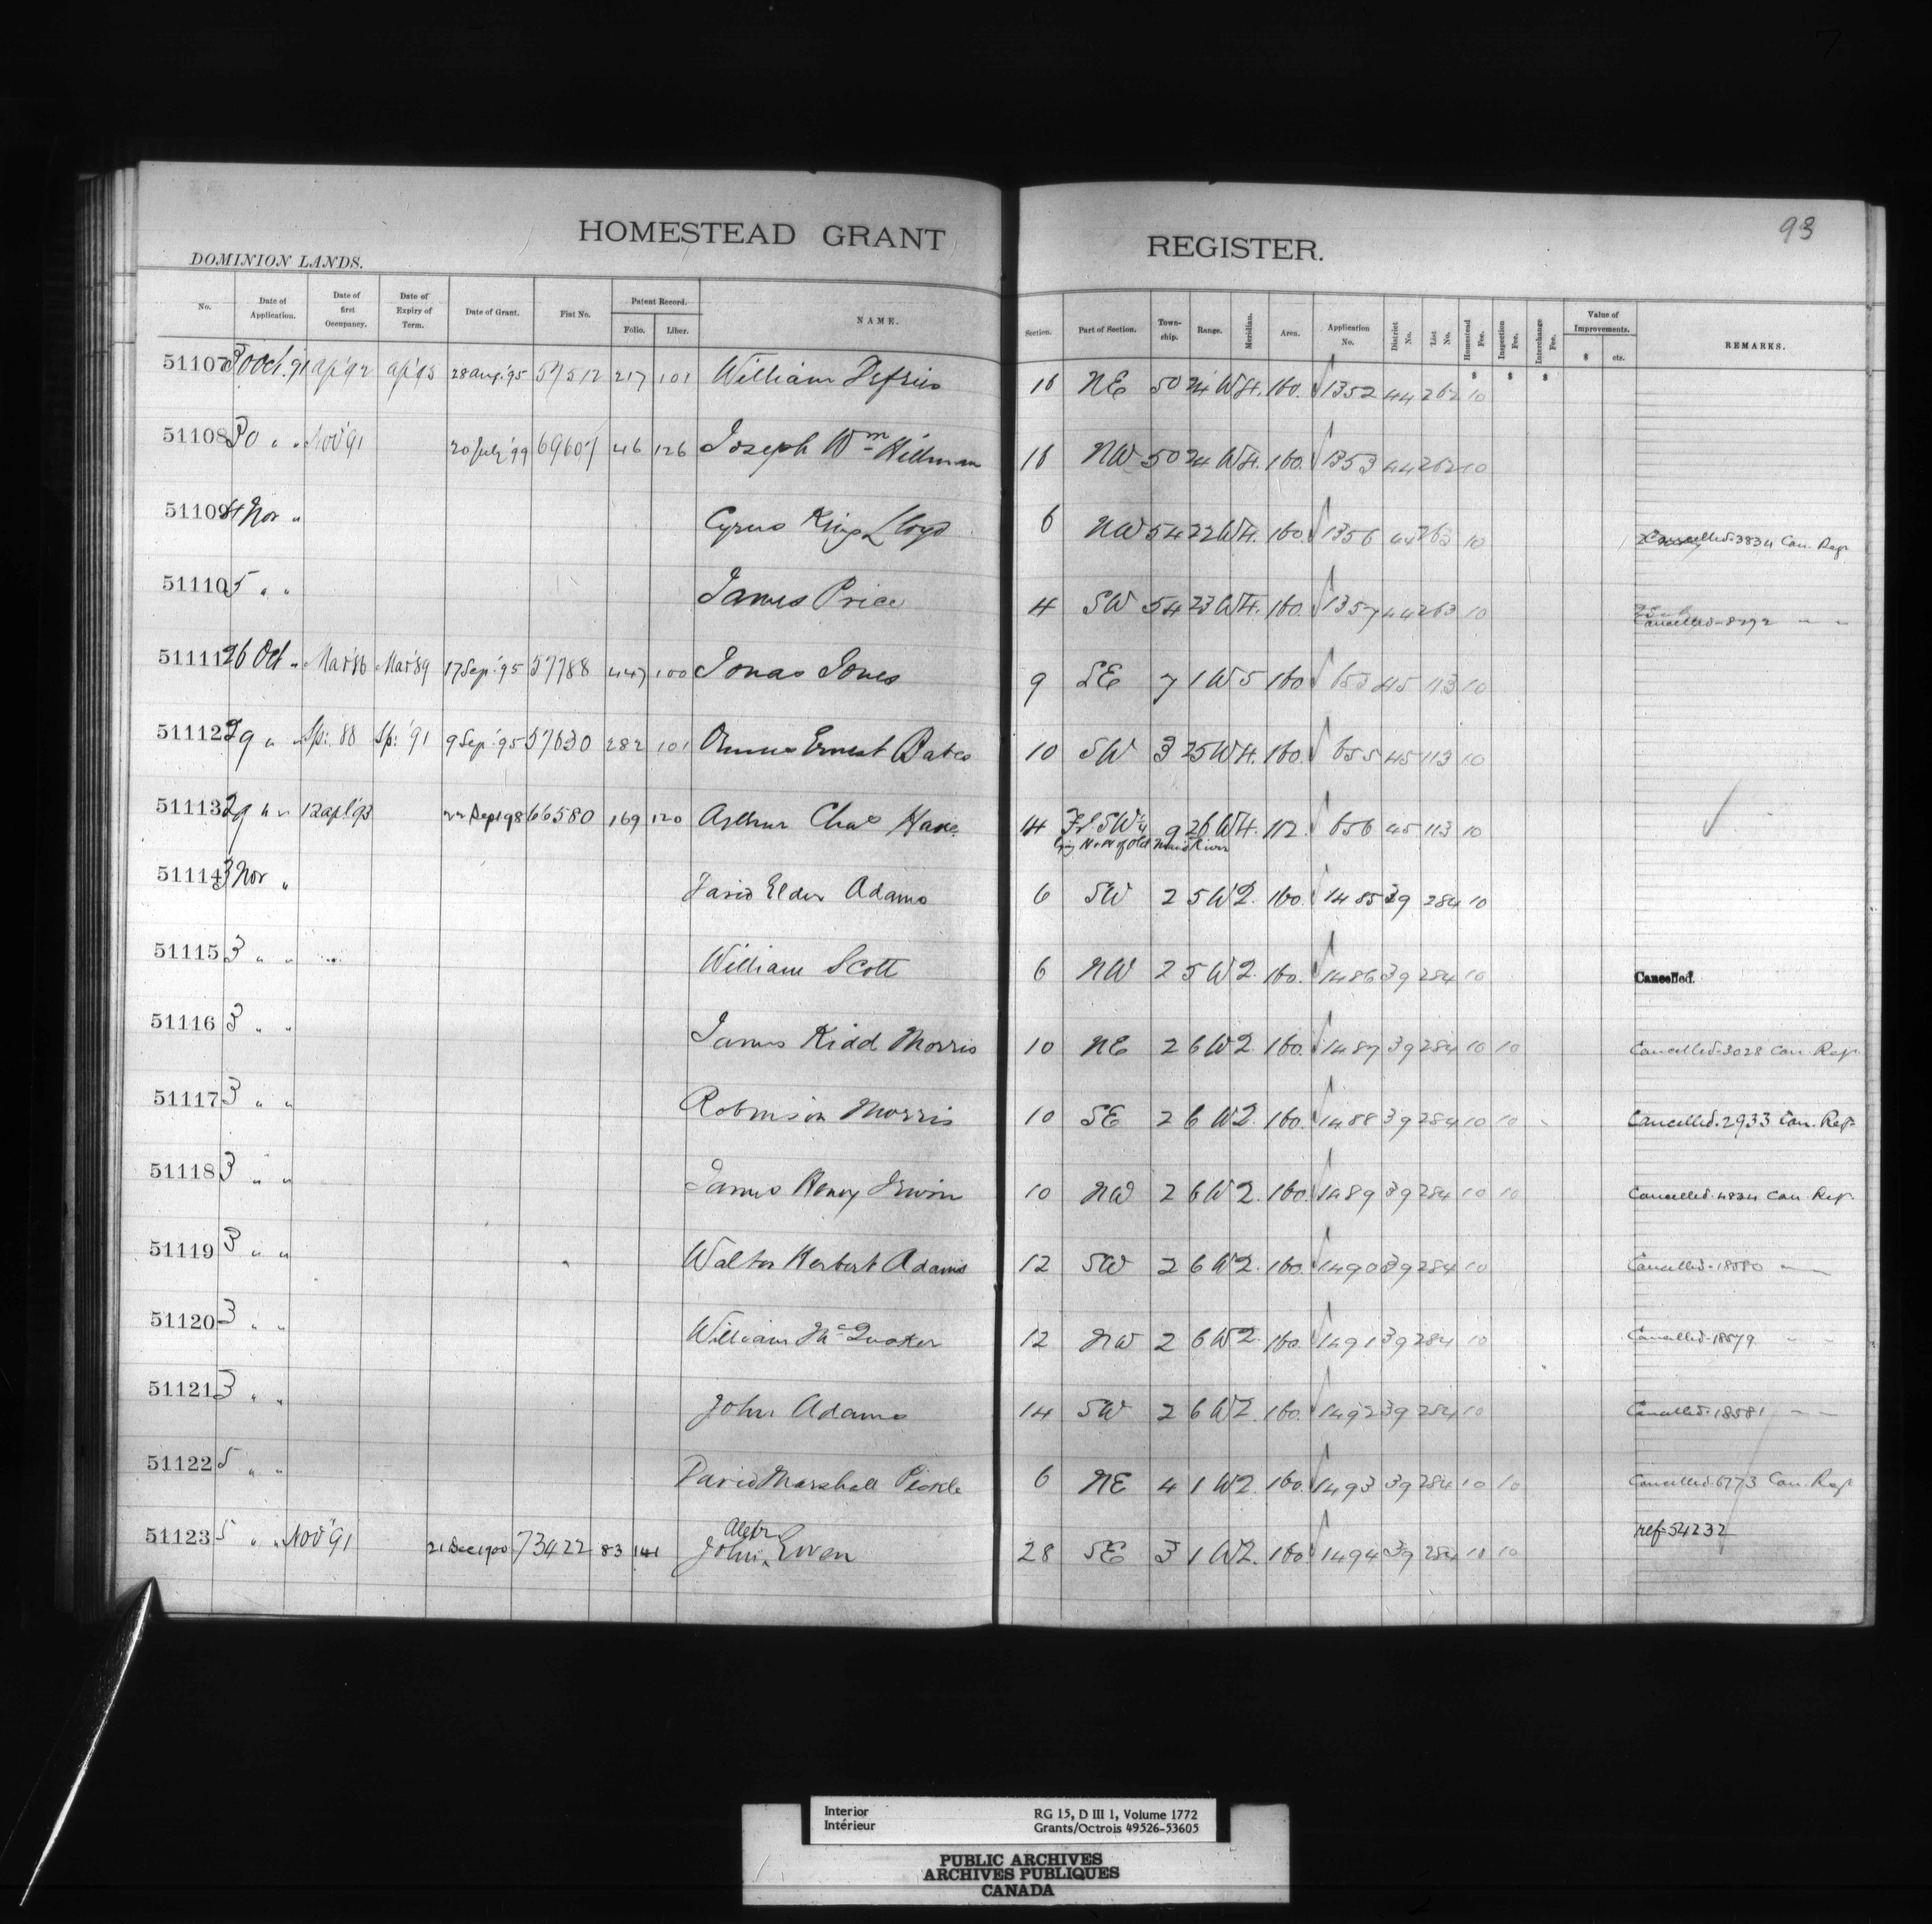 93
HOMESTEAD GRANT REGISTER.
DOMINION LANDS.
No. Date of Application. Date of first Occupancy. Date of Expiry of Term. Date of Grant. Fiat No. Patent Record. Folio. Liber. NAME. Section. Part of Section. Town-ship. Range. Meridian. Area. Application No. District No. List No. Homestead Fee. Inspection Fee. Interchange Fee. Value of Improvements. $ cts. REMARKS.
$ $ $
51107 30 Oct. 91 apl '92 apl '95 28 Aug. '95 57512 217 101 William 16 NE 50 24 W 4. 160. 1352 44 262 10
51108 30 " " Nov '91 20 July '99 69607 46 126 Joseph Wm Hillman 16 NW 50 24 W 4. 160. 1353 44 262 10
51109 4 Nov " Cyrus King Lloyd 6 NW 54 22 W 4. 160. 1356 44 263 10 Cancelled. 3834 Can. Regr
51110 5 " " James Price 4 SW 54 23 W 4. 160. 1357 44 263 10 Cancelled - 8292 " "
51111 26 Oct " Mar '86 Mar '89 17 Sep. '95 57788 447 100 Jonas Jones 9 SE 7 1 W 5 160 653 45 113 10
51112 29 " " Sp: 88 Sp: '91 9 Sep. '95 57630 282 101 Ernest Bates 10 SW 3 25 W 4. 160. 655 45 113 10
51113 29 " " 12 apl '93 22 Sept 98 66580 169 120 Arthur Chas 14 Fl. SW 1/4 9 26 W 4. 112. 656 45 113 10
lying N & W of Old River
51114 3 Nov " David Elder Adams 6 SW 2 5 W 2. 160. 1485 39 284 10
51115 3 " " William Scott 6 NW 2 5 W 2. 160. 1486 39 284 10 Cancelled.
51116 3 " " James Kidd Morris 10 NE 2 6 W 2. 160. 1487 39 284 10 10 Cancelled. 3028 Can. Regr.
51117 3 " " Robinson Morris 10 SE 2 6 W 2. 160. 1488 39 284 10 10 Cancelled. 2933 Can. Regr
51118 3 " " James Henry Irwin 10 NW 2 6 W 2. 160. 1489 39 284 10 10 Cancelled. 4834 Can. Regr.
51119 3 " " Walter Herbert Adams 12 SW 2 6 W 2. 160. 1490 39 284 10 Cancelled. 18580 " "
51120 3 " " William McQuaker 12 NW 2 6 W 2. 160. 1491 39 284 10 Cancelled. 18579 " "
51121 3 " " John Adams 14 SW 2 6 W 2. 160. 1492 39 284 10 Cancelled. 18581 " "
51122 5 " " David Marshall Pickle 6 NE 4 1 W 2. 160. 1493 39 284 10 10 Cancelled. 6773 Can. Regr
51123 5 " " Nov '91 21 Dec 1900 73422 83 141 John Alexr Ewen 28 SE 3 1 W 2. 160 1494 39 284 10 10 ref 54232
Interior
Intérieur
RG 15, D III 1, Volume 1772
Grants/Octrois 49526-53605
PUBLIC ARCHIVES
ARCHIVES PUBLIQUES
CANADA